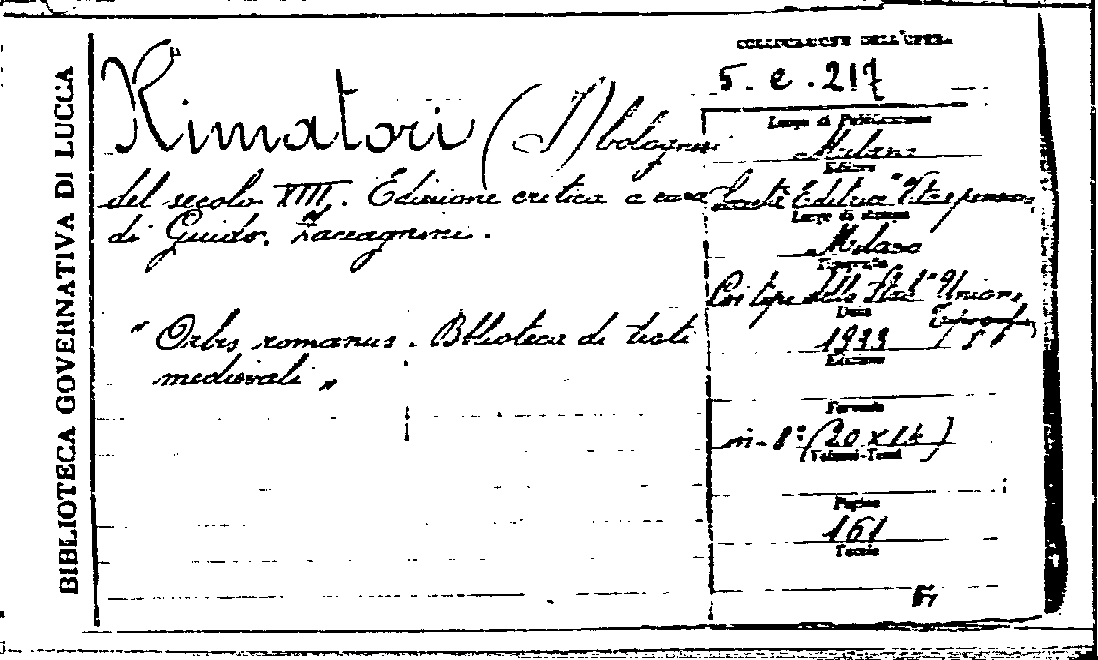 BIBLIOTECA GOVERNATIVA DI LUCCA
Rimatori (I) bolognesi
del secolo XIII. Edizione critica a cura
di Guido Zaccagnini.
" Orbis romanus. Biblioteca di testi
medievali "
COLLOCAZIONE DELL'OPERA
5. e. 217
Luogo di Pubblicazione
Milano
Editore
Società Editrice "Vita e pensiero
Luogo di stampa
Milano
Tipografia
Coi tipi dello Stab.
Data
1933
Edizione
Formato
in-8° (20 x 14)
Volumi-Tomi
Pagine
161
Tavole